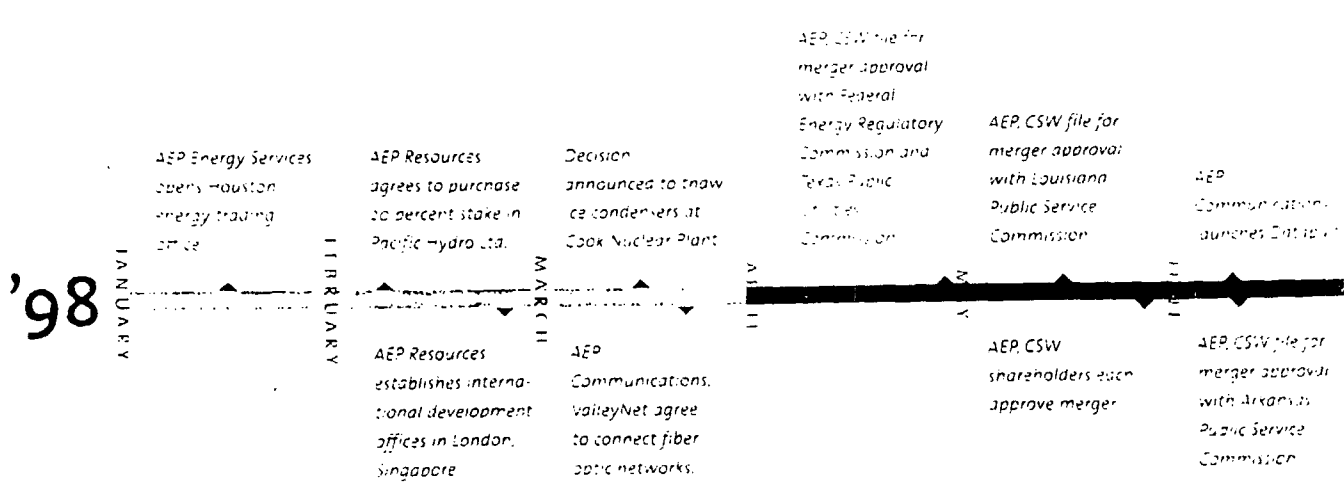 '98
JANUARY
AEP Energy Services
opens Houston
energy trading
office
FEBRUARY
AEP Resources
agrees to purchase
20 percent stake in
Pacific Hydro Ltd.
AEP Resources
establishes interna-
tional development
offices in London,
Singapore
MARCH
Decision
announced to thaw
ice condensers at
Cook Nuclear Plant
AEP
Communications,
ValleyNet agree
to connect fiber
optic networks.
APRIL
AEP, CSW file for
merger approval
with Federal
Energy Regulatory
Commission and
Texas Public
Utilities
Commission
MAY
AEP, CSW file for
merger approval
with Louisiana
Public Service
Commission
AEP, CSW
shareholders each
approve merger
AEP
Communications
launches
AEP, CSW file for
merger approval
with Arkansas
Public Service
Commission